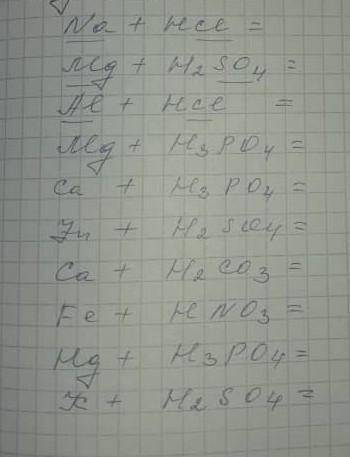 Na + HCl =
Mg + H2SO4 =
Al + HCl =
Mg + H3PO4 =
Ca + H3PO4 =
Zn + H2SO4 =
Ca + H2CO3 =
Fe + HNO3 =
Hg + H3PO4 =
K + H2SO4 =